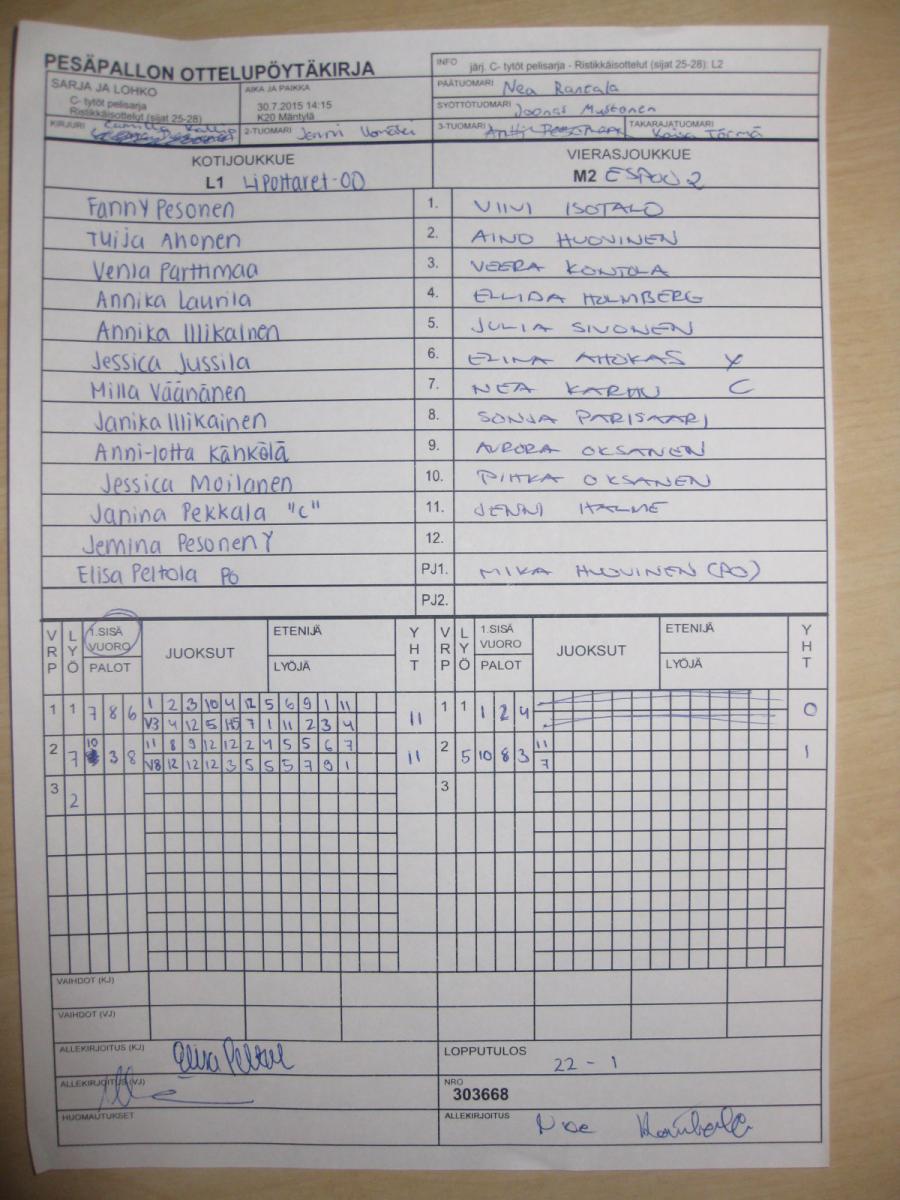 PESÄPALLON OTTELUPÖYTÄKIRJA
INFO järj. C- tytöt pelisarja - Ristikkäisottelut (sijat 25-28): L2
SARJA JA LOHKO
C- tytöt pelisarja
Ristikkäisottelut (sijat 25-28)
AIKA JA PAIKKA
30.7.2015 14:15
K20 Mäntylä
PÄÄTUOMARI Nea Rantala
SYÖTTÖTUOMARI Joonas Mustonen
KIRJURI
2-TUOMARI Jenni
3-TUOMARI
TAKARAJATUOMARI Kaisa Törmä
KOTIJOUKKUE
L1 Lipottaret-00
VIERASJOUKKUE
M2 ESPOO 2
Fanny Pesonen 1. VIIVI ISOTALO
Tuija Ahonen 2. AINO HUOVINEN
Venla Parttimaa 3. VEERA KONTOLA
Annika Laurila 4. ELLIDA HOLMBERG
Annika Illikainen 5. JULIA SIVONEN
Jessica Jussila 6. ELINA AHOKAS Y
Milla Väänänen 7. NEA KARHU C
Janika Illikainen 8. SONJA PARISAARI
Anni-lotta Känkölä 9. AURORA OKSANEN
Jessica Moilanen 10. PIHKA OKSANEN
Janina Pekkala "C" 11. JENNI HALME
Jemina Pesonen Y 12.
Elisa Peltola PO PJ1. MIKA HUOVINEN (PO)
PJ2.
VRP LYÖ 1.SISÄ VUORO PALOT JUOKSUT ETENIJÄ LYÖJÄ YHT VRP LYÖ 1.SISÄ VUORO PALOT JUOKSUT ETENIJÄ LYÖJÄ YHT
1 1 7 8 6 1 2 3 10 4 12 5 6 9 1 11 11 1 1 1 2 4 0
V3 4 12 5 H5 7 1 11 2 3 4
2 7 10 3 8 11 8 9 12 12 2 4 5 5 6 7 11 2 5 10 8 3 11 1
V8 12 12 12 3 5 5 5 7 9 1 7
3 2 3
VAIHDOT (KJ)
VAIHDOT (VJ)
ALLEKIRJOITUS (KJ) Elisa Peltola
LOPPUTULOS 22 - 1
ALLEKIRJOITUS (VJ)
NRO
303668
HUOMAUTUKSET
ALLEKIRJOITUS